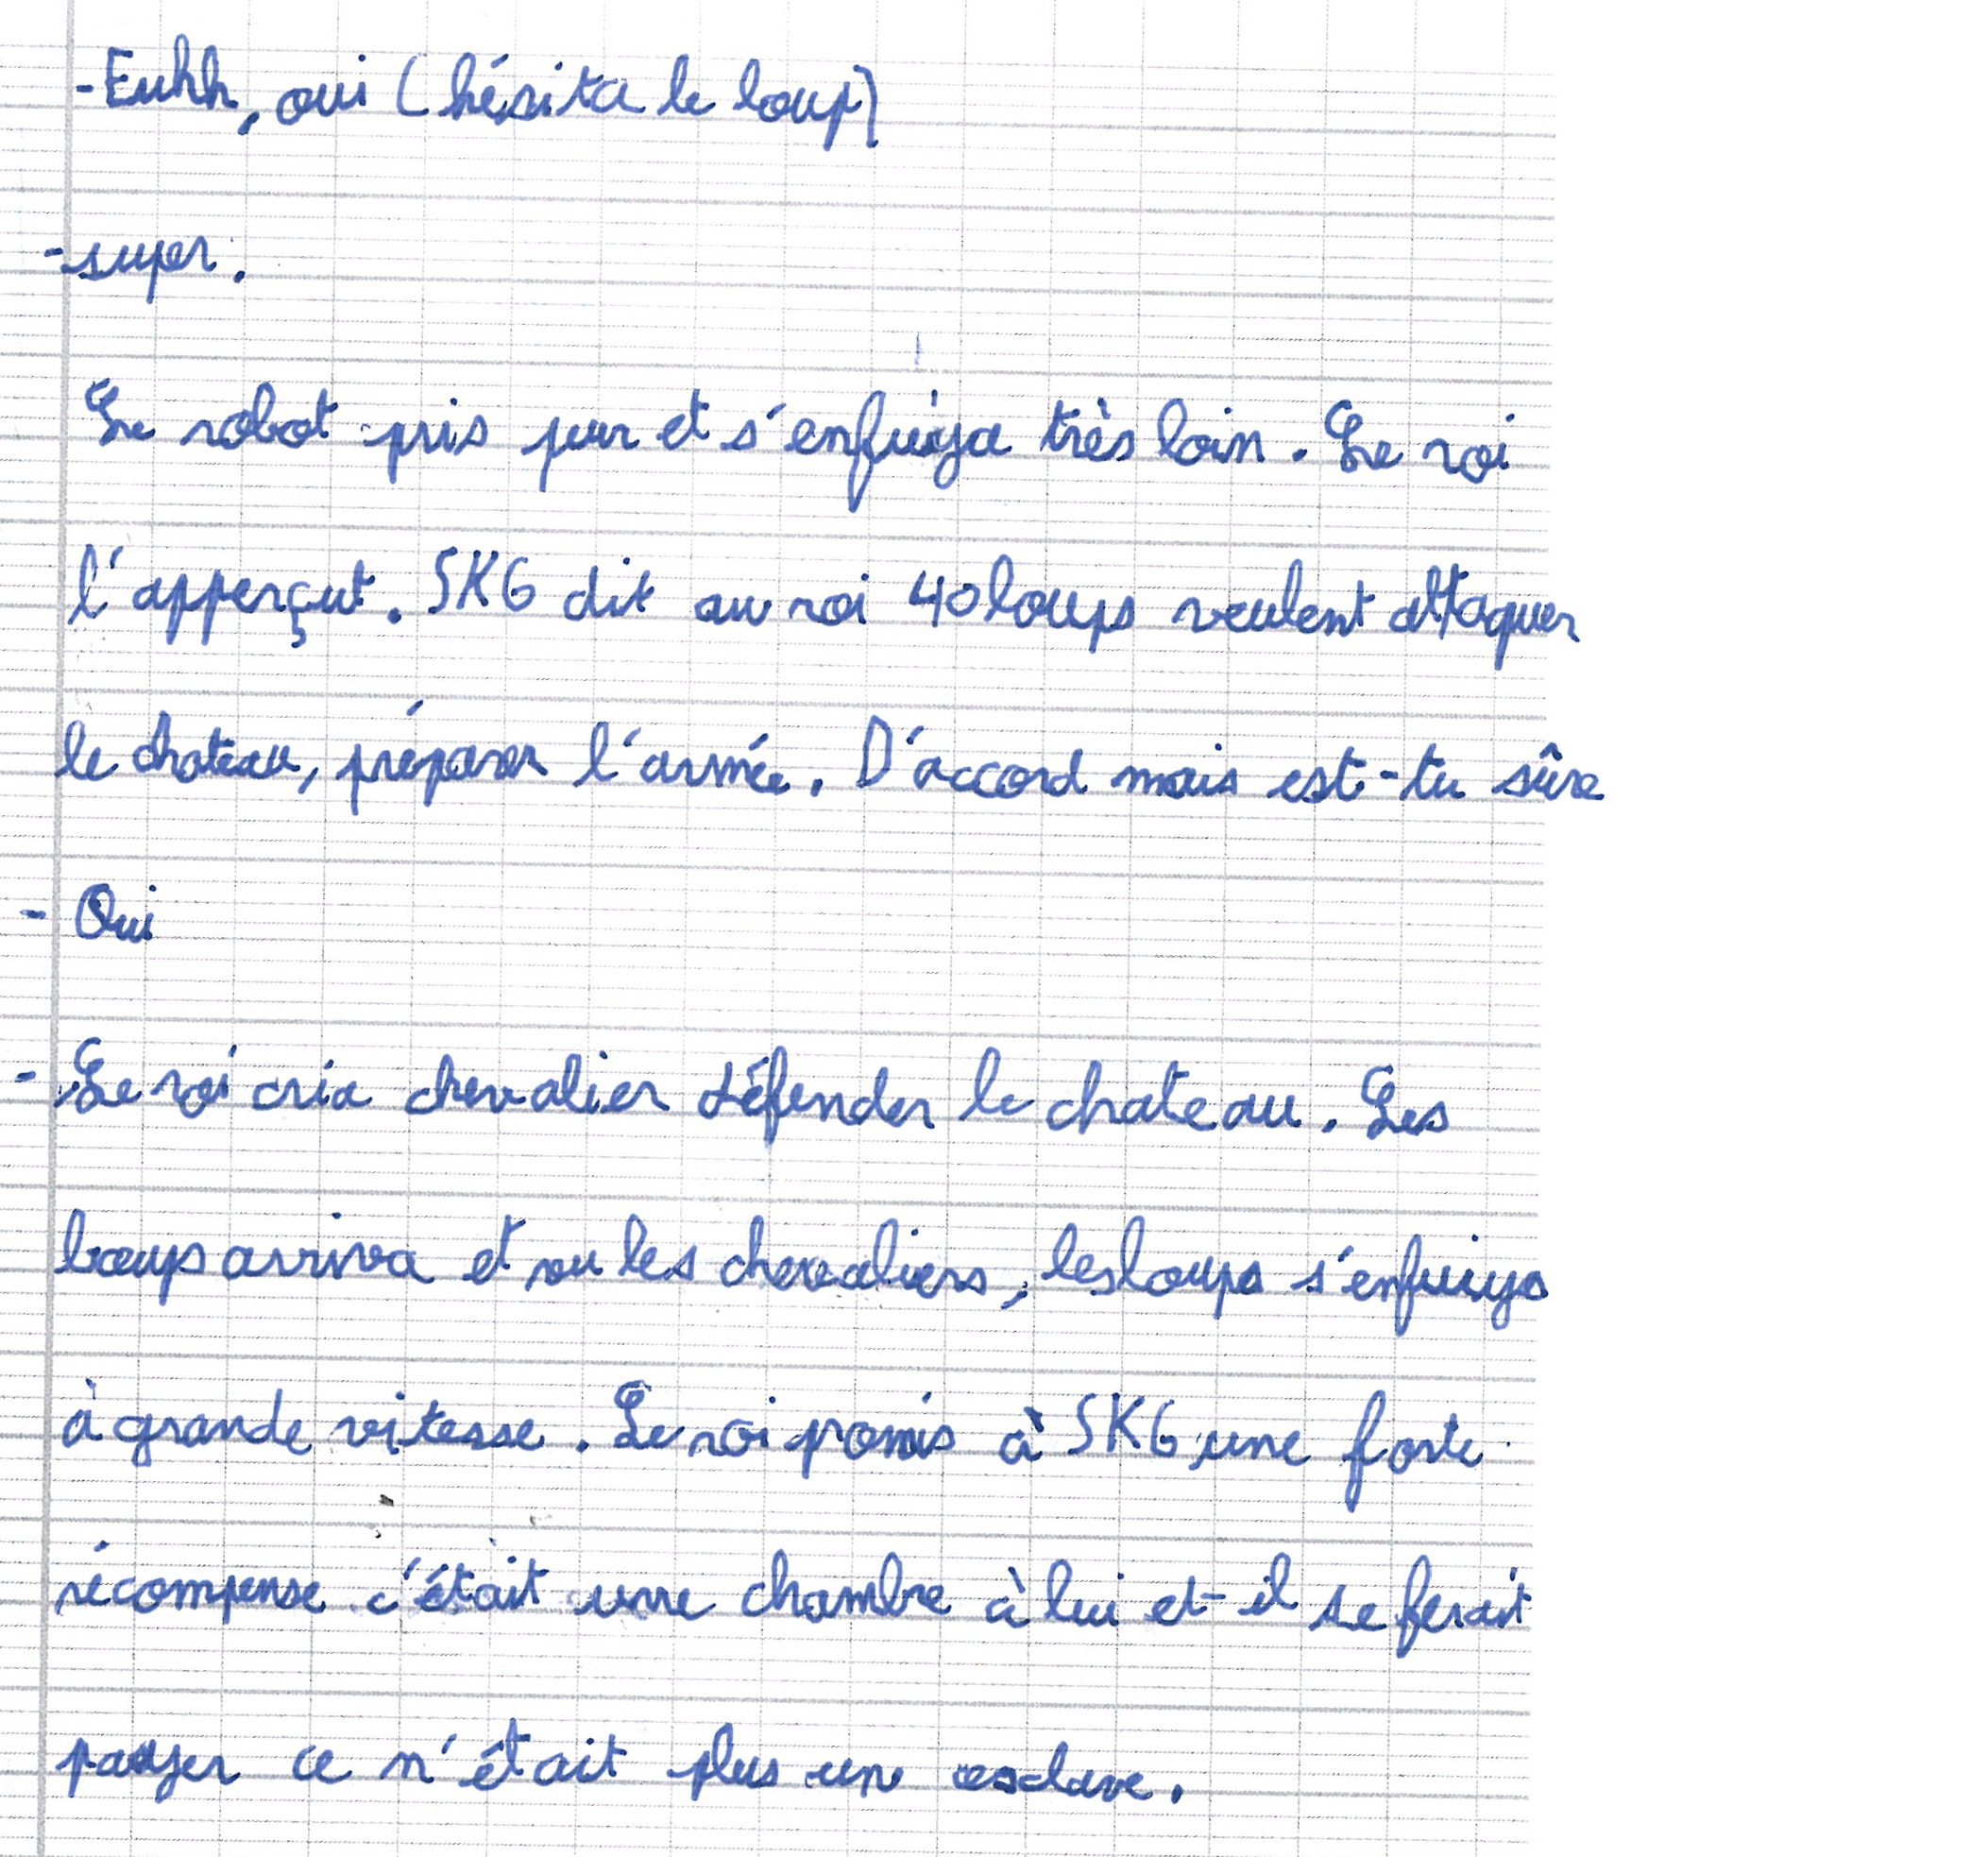 -Euhh, oui (hésita le loup)
-super.
Le robot pris peur et s'enfuiya très loin. Le roi
l'apperçut. SKG dit au roi 40 loups veulent attaquer
le chateau, préparer l'armée. D'accord mais est-tu sûre
- Oui
- Le roi cria chevalier défender le chateau. Les
loups arriva et vu les chevaliers, les loups s'enfuiya
à grande vitesse. Le roi promis à SKG une forte
récompense c'était une chambre à lui et-il se ferait
payer ce n'était plus un esclave.